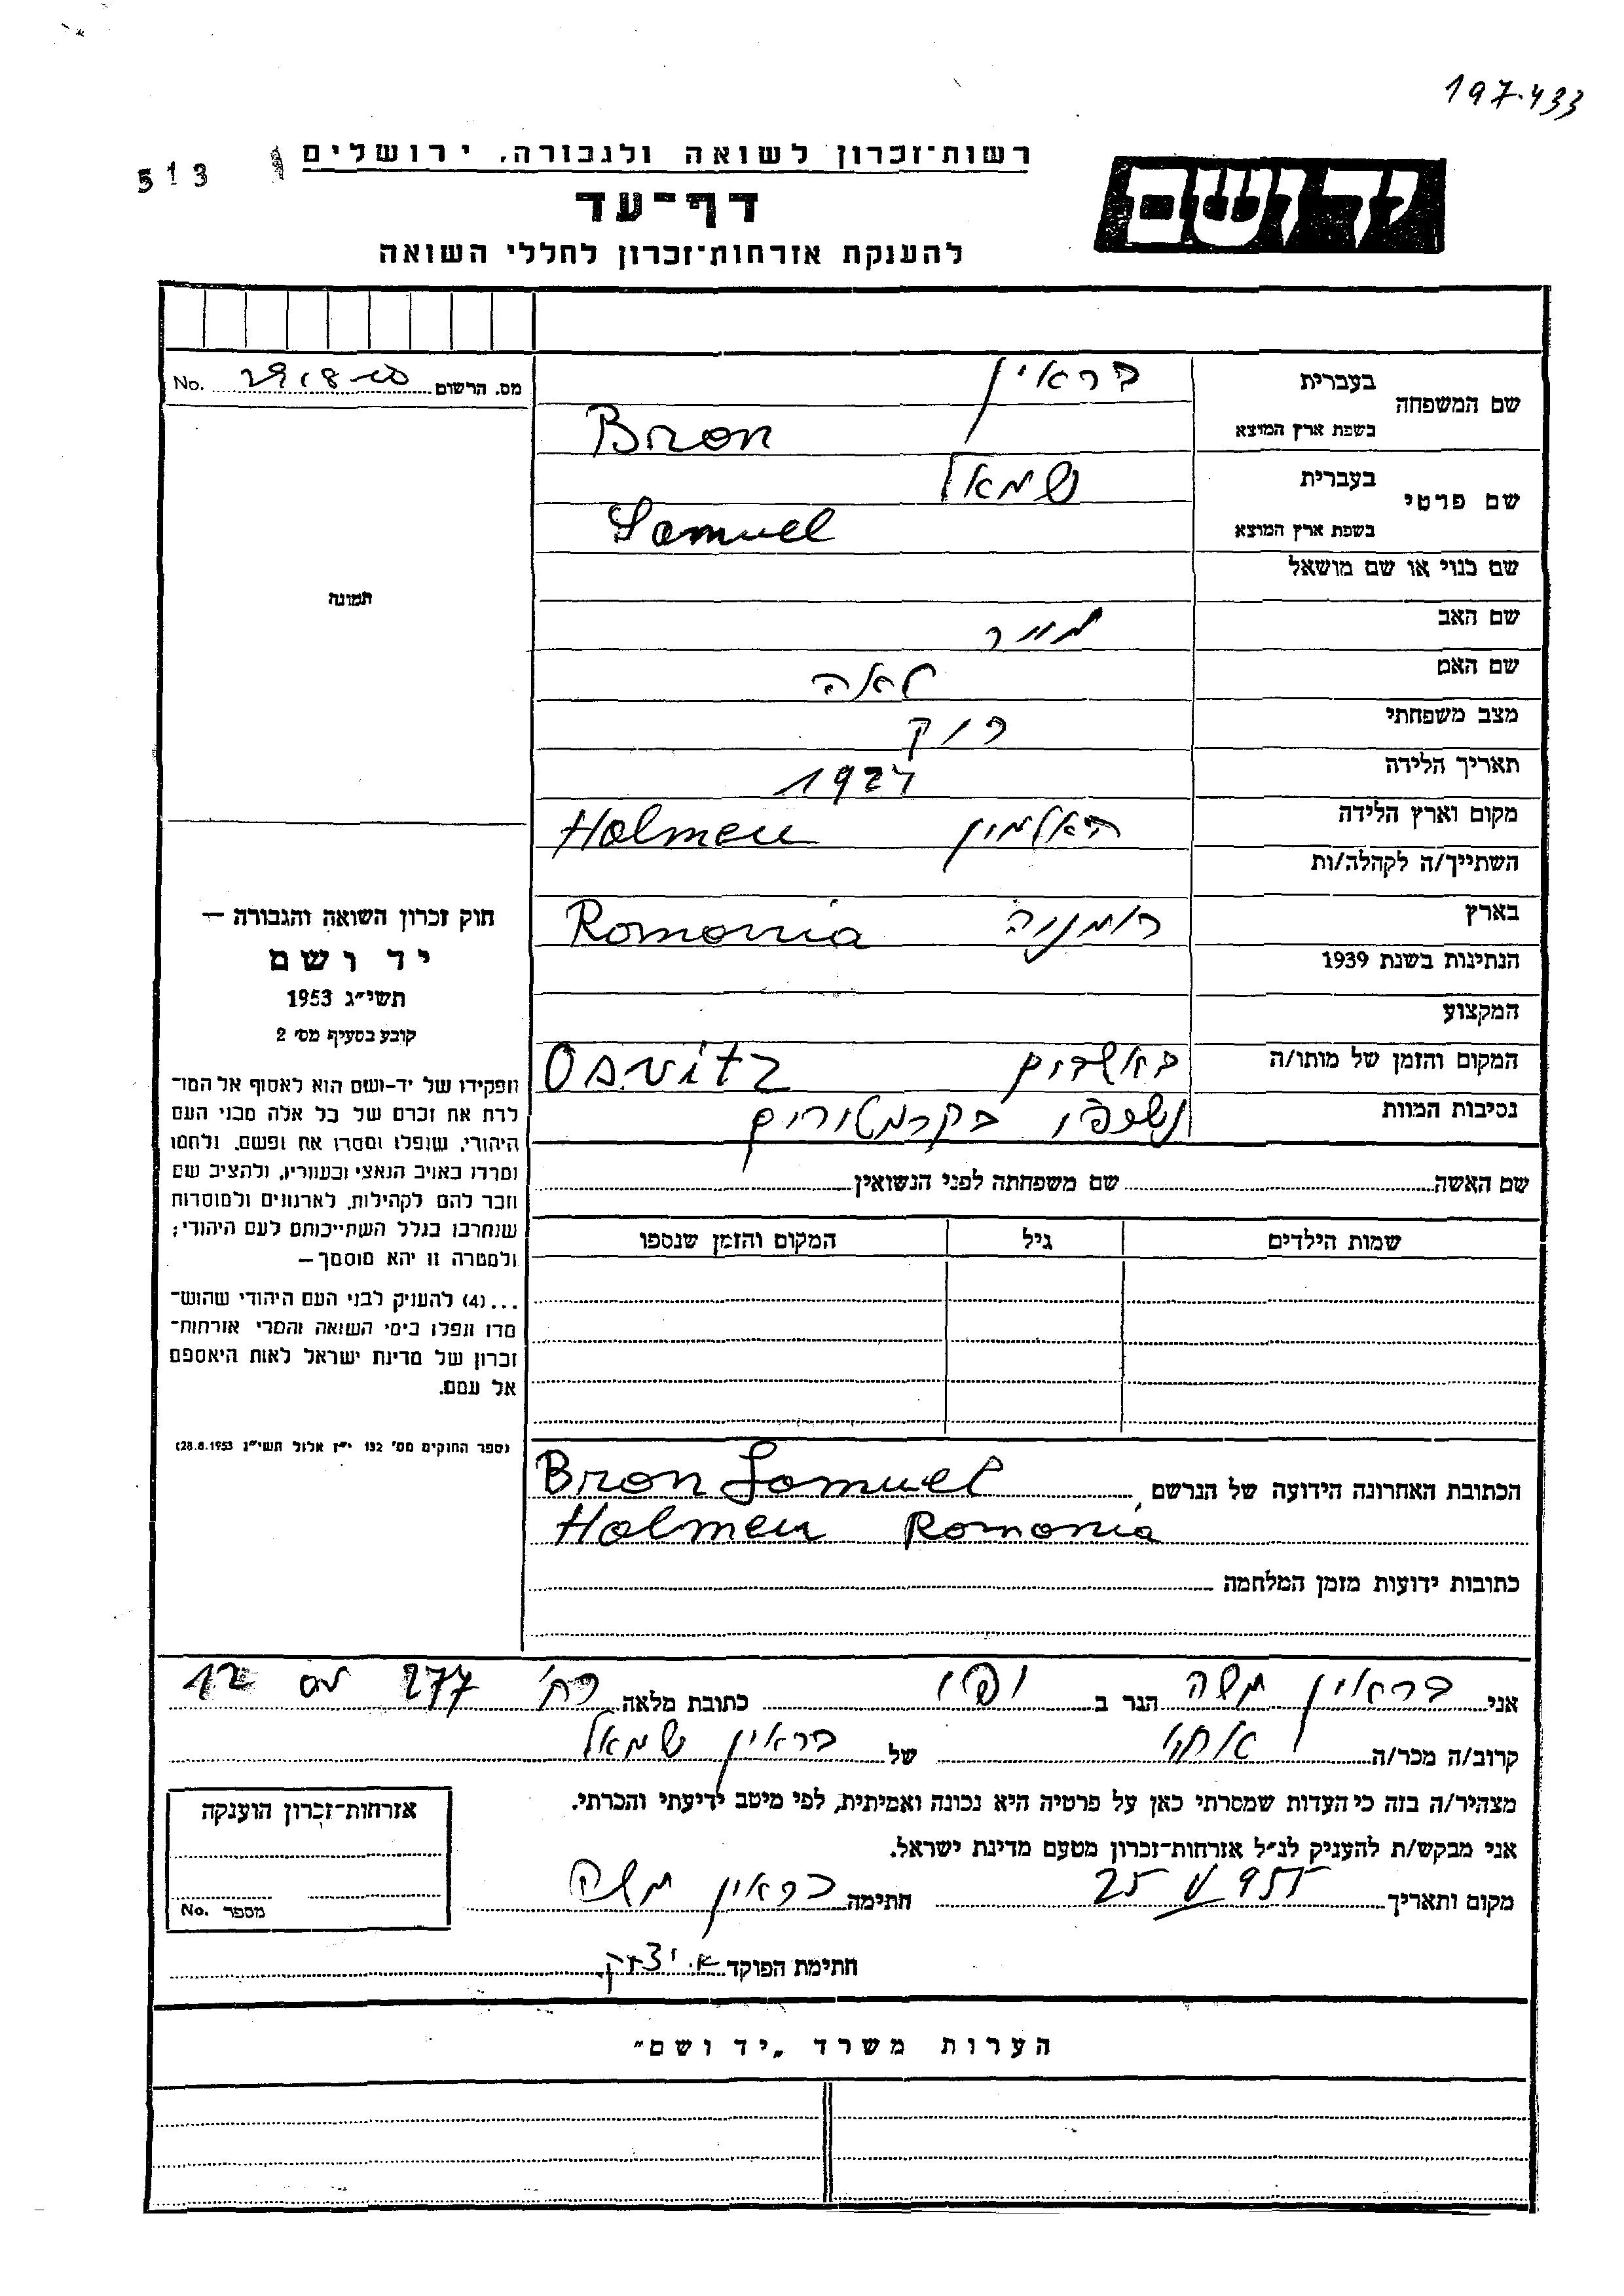 197.433
רשות־זכרון לשואה ולגבורה, ירושלים
513
יד ושם
דף־עד
להענקת אזרחות־זכרון לחללי השואה
No. מס. הרשום
שם המשפחה
בעברית בראין
בשפת ארץ המוצא Bron
שם פרטי
בעברית שמאל
בשפת ארץ המוצא Samuel
שם כנוי או שם מושאל
שם האב מייר
שם האם לאה
מצב משפחתי רווק
תאריך הלידה 1927
מקום וארץ הלידה האלמין Holmeu
השתייך/ה לקהלה/ות
בארץ רומניה Romonia
הנתינות בשנת 1939
המקצוע
המקום והזמן של מותו/ה Osvitz
נסיבות המוות נשרפו בקרמטורים
תמונה
חוק זכרון השואה והגבורה —
יד ושם
תשי״ג 1953
קובע בסעיף מס׳ 2
תפקידו של יד-ושם הוא לאסוף אל המו־
לדת את זכרם של כל אלה מבני העם
היהודי, שנפלו ומסרו את נפשם, נלחמו
ומרדו באויב הנאצי ובעוזריו, ולהציב שם
וזכר להם לקהילות, לארגונים ולמוסדות
שנחרבו בגלל השתייכותם לעם היהודי;
ולמטרה זו יהא מוסמך —
...(4) להעניק לבני העם היהודי שהוש־
מדו ונפלו בימי השואה והמרי אזרחות־
זכרון של מדינת ישראל לאות היאספם
אל עמם.
(ספר החוקים מס׳ 132 י״ז אלול תשי״ג 28.8.1953)
שם האשה שם משפחתה לפני הנשואין
שמות הילדים גיל המקום והזמן שנספו
הכתובת האחרונה הידועה של הנרשם, Bron Samuel
Holmeu Romonia
כתובות ידועות מזמן המלחמה
אני בראין משה הגר ב יפו כתובת מלאה רח׳ 277 מס 12
קרוב/ה מכר/ה אחי של בראין שמאל
מצהיר/ה בזה כי העדות שמסרתי כאן על פרטיה היא נכונה ואמיתית, לפי מיטב ידיעתי והכרתי.
אני מבקש/ת להעניק לנ״ל אזרחות־זכרון מטעם מדינת ישראל.
מקום ותאריך חתימה בראין משה
חתימת הפוקד א. יצחק
אזרחות־זכרון הוענקה
No. מספר
הערות משרד „יד ושם״